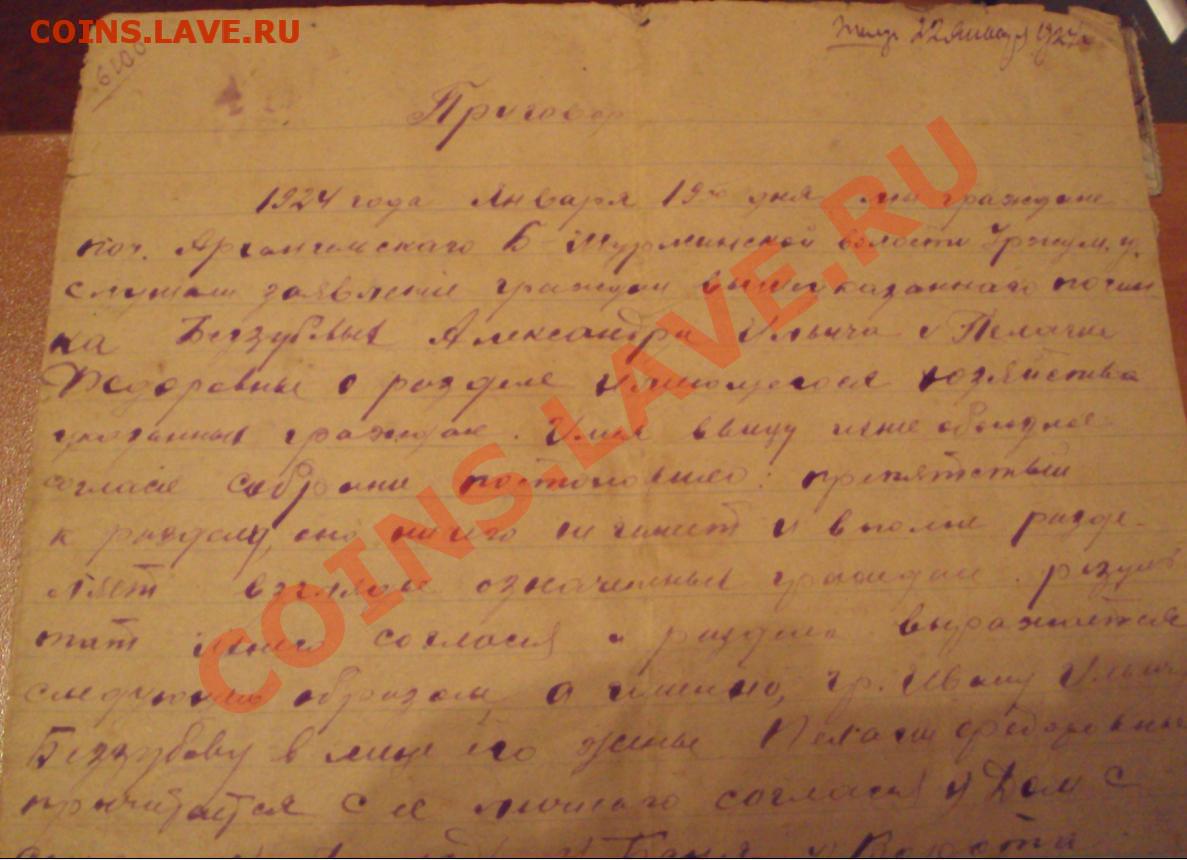 COINS.LAVE.RU
22 Января 1924
0019
Приговор
1924 года Января 19го дня мы граждане
поч. Архангельскаго Б-Шурминской волости Уржум. у.
слушали заявление граждан вышеуказаннаго почин
ка Беззубовых Александра Ильича и Пелагии
Федоровны о разделе имеющегося хозяйства
указанных граждан. Имея ввиду их обоюдное
согласие собрание постановило: препятствий
к разделу, оно не имеет и вполне разде-
ляет взгляды означенных граждан. резуль
тат согласия и раздела выражается
следующим образом, а именно, гр. Ивану Ильичу
Беззубову в лице его жены Пелагии Федоровны
причитается с ея личнаго согласия 1) Дом с
Баня
COINS.LAVE.RU